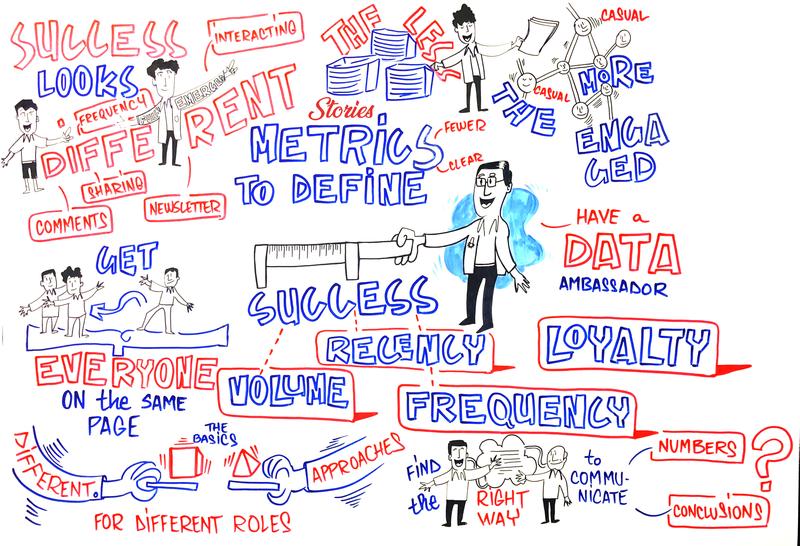 SUCCESS
LOOKS
DIFFERENT
INTERACTING
FREQUENCY
SHARING
COMMENTS
NEWSLETTER
THE LESS
Stories
THE MORE
ENGA
GED
CASUAL
CASUAL
METRICS
TO DEFINE
SUCCESS
FEWER
CLEAR
HAVE a
DATA
AMBASSADOR
VOLUME
RECENCY
FREQUENCY
LOYALTY
GET
EVERYONE
ON the SAME
PAGE
DIFFERENT
THE
BASICS
APPROACHES
FOR DIFFERENT ROLES
FIND
the
RIGHT
WAY
to
COMMU-
NICATE
NUMBERS
?
CONCLUSIONS